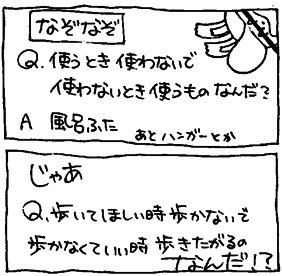 なぞなぞ
Q.使うとき使わないで
使わないとき使うものなんだ?
A 風呂ふた
あとハンガーとか
じゃあ
Q.歩いてほしい時歩かないで
歩かなくていい時歩きたがるの
なんだ!?